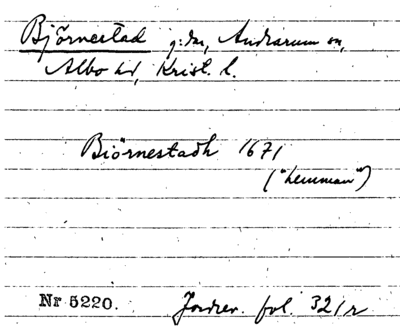 Björnestad g:dn, Andrarum sn,
Albo hd, Krist. l.
Biörnestadh 1671
("hemman")
Nr 5220. Jordrev. fol. 321r